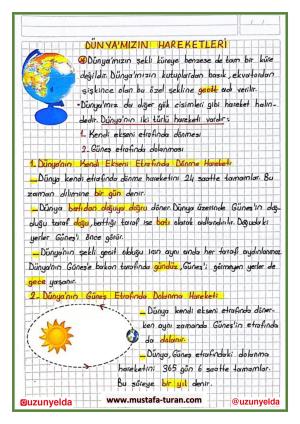 DÜNYA'MIZIN HAREKETLERİ
Dünya'mızın şekli küreye benzese de tam bir küre
değildir. Dünya'mızın kutuplardan basık, ekvatordan
şişkince olan bu özel şekline geoit adı verilir.
-Dünya'mız da diğer gök cisimleri gibi hareket halin-
dedir. Dünya'nın iki türlü hareketi vardır:
1. Kendi ekseni etrafında dönmesi
2. Güneş etrafında dolanması
1. Dünya'nın Kendi Ekseni Etrafında Dönme Hareketi
Dünya kendi etrafında dönme hareketini 24 saatte tamamlar. Bu
zaman dilimine bir gün denir.
Dünya batıdan doğuya doğru döner. Dünya üzerinde Güneş'in doğ-
duğu taraf doğu, battığı taraf ise batı olarak adlandırılır. Doğudaki
yerler Güneş'i önce görür.
Dünya'nın şekli geoit olduğu için aynı anda her taraf aydınlanmaz.
Dünya'nın Güneş'e bakan tarafında gündüz, Güneş'i görmeyen yerler de
gece yaşanır.
2- Dünya'nın Güneş Etrafında Dolanma Hareketi:
Dünya kendi etrafında döner-
ken aynı zamanda Güneş'in etrafında
da dolanır.
Dünya, Güneş etrafındaki dolanma
hareketini 365 gün 6 saatte tamamlar.
Bu süreye bir yıl denir.
@uzunyelda
www.mustafa-turan.com
@uzunyelda